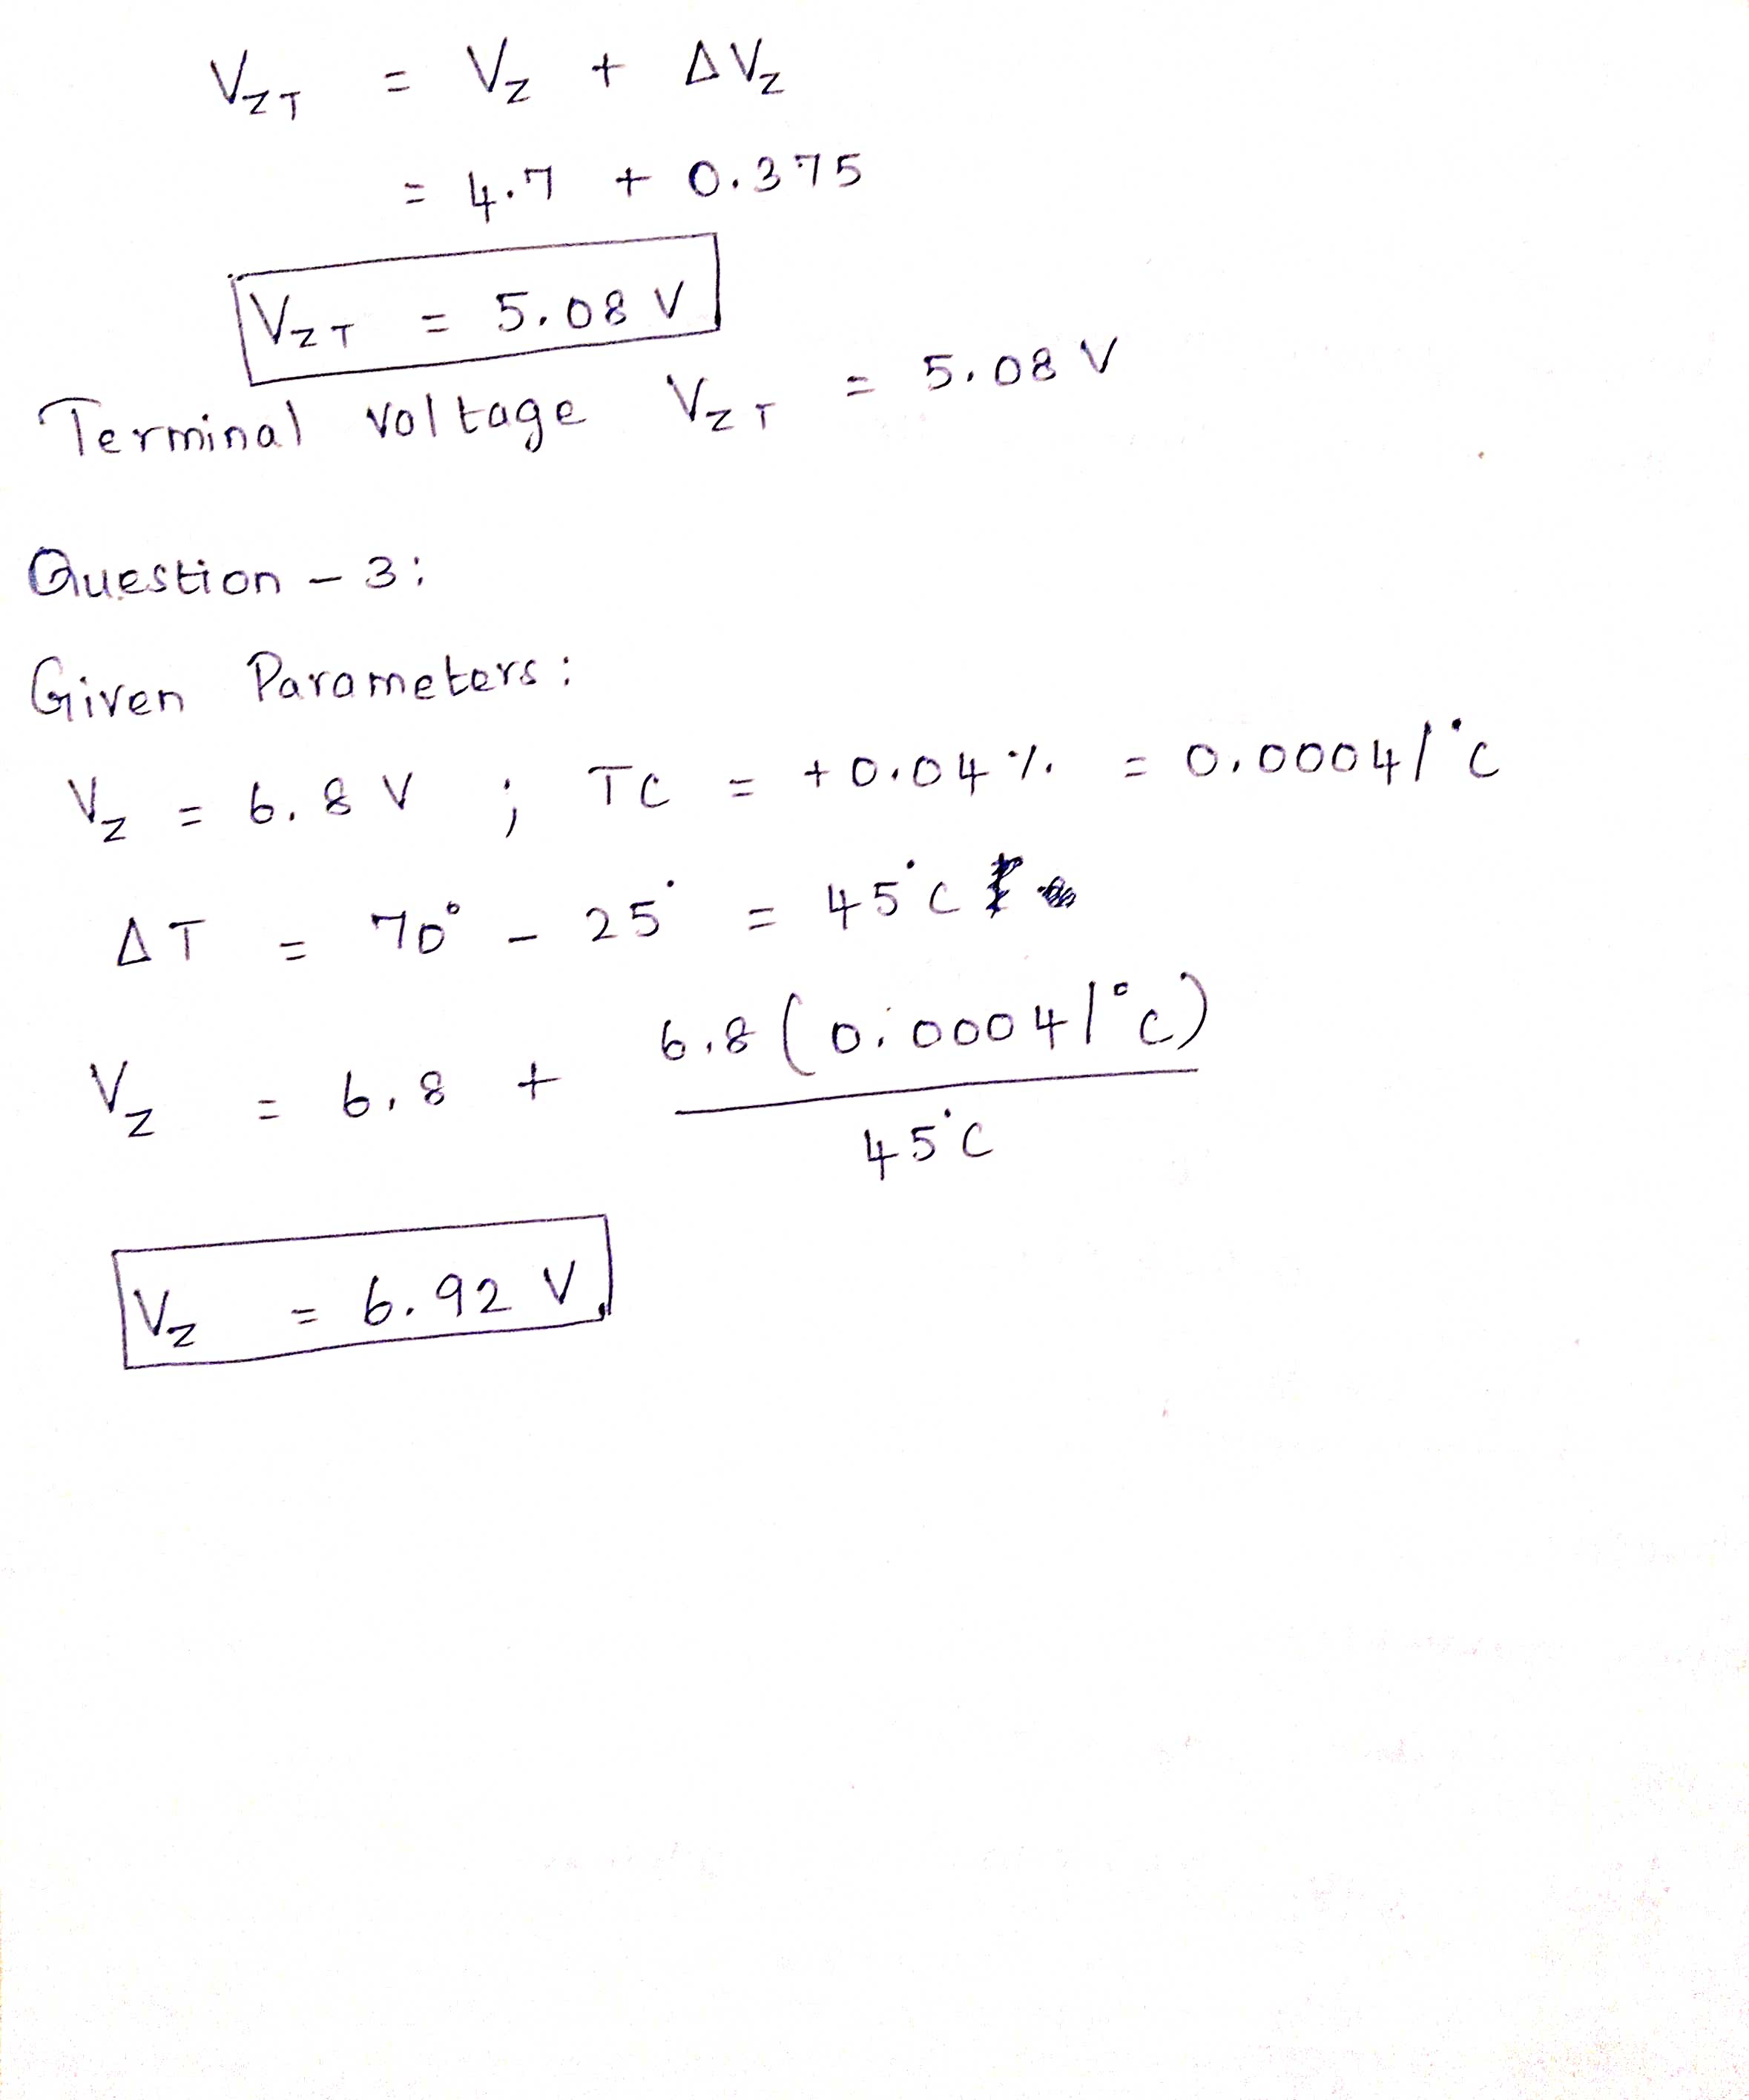 V_ZT = V_Z + ΔV_Z
= 4.7 + 0.375
V_ZT = 5.08 V
Terminal voltage V_ZT = 5.08 V
Question - 3:
Given Parameters:
V_Z = 6.8 V ; TC = +0.04 % = 0.0004/°C
ΔT = 70° - 25° = 45°C
V_Z = 6.8 + 6.8 (0.0004/°C) / 45°C
V_Z = 6.92 V